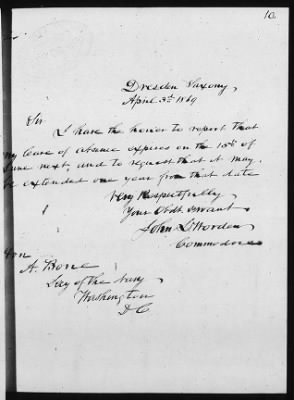 10
Dresden Saxony,
April 3rd 1869
Sir
I have the honor to report that
my leave of absence expires on the 15th of
June next, and to request that it may
be extended one year from that date
Very Respectfully
Your Obdt Servant
John L Worden
Commodore
Hon
A. Borie
Secy of the Navy
Washington
D C